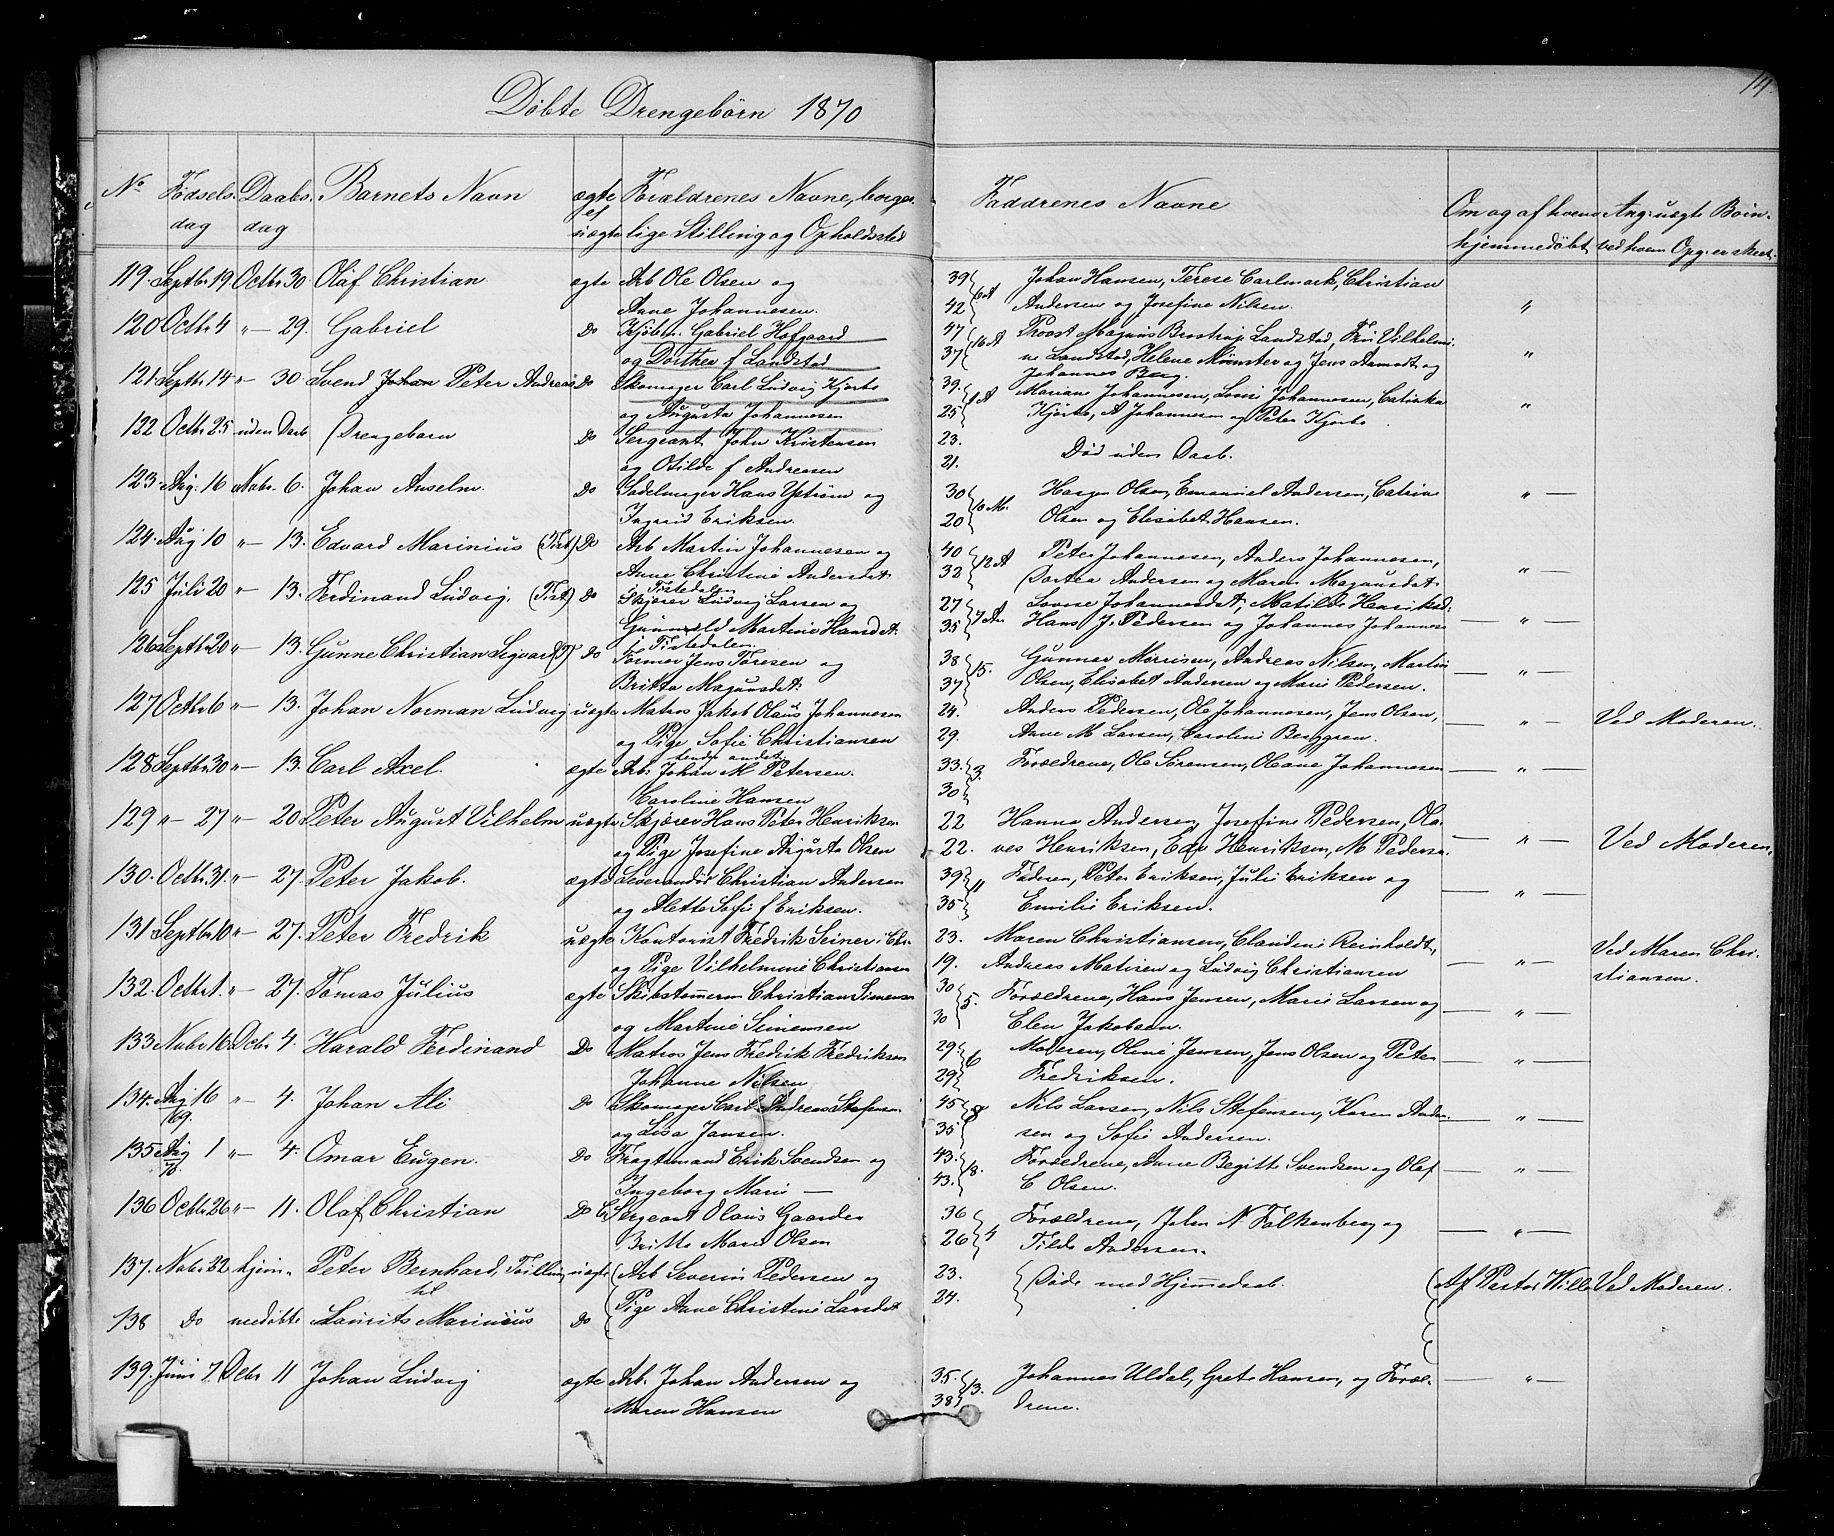 Döbte Drengebörn 1870
14.
No Födsels dag Daabs dag Barnets Navn ægte el uægte Forældrenes Navne, borger lige Stilling og Opholdssted Faddrenes Navne Om og af hvem hjemmedöbt Ang. uægte Börn ved hvem Opg. er skeet
119. Septbr 19 Octbr 30. Olaf Christian ægte Arb Ole Olsen og 39 Johan Hansen, Terese Carlmark, Christian
Anne Johannesen. 42 6 A Andersen og Josefine Nilsen. "
120 Octbr 4 "— 29. Gabriel Do Kjöbm. Gabriel Hofgaard 47 Provst Magnus Brostrup Landstad, Fru Vilhelmi-
og Dorthea f Landstad 37 16 A ne Landstad, Helene Mönster og Jens Aamodt og "
Johannes Berg.
121. Septbr 14 "— 30 Svend Johan Peter Andreas Do Skomager Carl Ludvig Kjorbo 39. Mariane Johannesen, Lovise Johannesen, Catinka
og Augusta Johannesen 25 1 A Kjorbo, A Johannesen og Peter Kjorbo "
122 Octbr 25 uden Daab Drengebarn Do Sergeant John Kristensen 23.
og Otilde f Andreasen 21. Död uden Daab.
123. Aug. 16 Nobr. 6. Johan Anselm. Do Sadelmager Hans Yström og 30 Haagen Olsen, Emanuel Andersen, Catrine
Ingrid Eriksen. 20 10 M. Olsen og Elisabet Hansen. " —
124. Aug 10 "— 13. Edvard Marinius (Tist) Do Arb Martin Johannesen og 40 Peter Johannesen, Anders Johannesen,
Anne Christine Andersdat. 32 12 A Dortea Andersen og Maren Magnusdat. " —
Tistedalen
125 Juli 20 "— 13. Ferdinand Ludvig. (Tist) Do Skjærer Ludvig Larsen og 27 Lovise Johannesdat, Matilde Henriksd.
Gunnild Martine Hansdat. 35 7 An Hans J. Pedersen og Johannes Johannes — " —
i Tistedalen.
126 Septbr 20 "— 13. Gunne Christian Sigvard (T) Do Former Jens Toresen og 38 Gunnar Morrisen, Andreas Nilsen, Martin
Britta Magnusdat. 37 15. Olsen, Elisabet Andersen og Marie Pedersen. — " —
127 Octbr 6 "— 13. Johan Norman Ludvig uægte Matros Jakob Olaus Johannesen 24. Anders Pedersen, Ole Johannesen, Jens Olsen,
og Pige Sofie Christiansen 29. Anne M Larsen, Caroline Berggren. — " — Ved Moderen.
hendes andet
128 Septbr 30 "— 13. Carl Axel. ægte Arb. Johan M Petersen. 33. Forældrene, Ole Sörensen, Oleane Johannesen — " —
Caroline Hansen 30 3
129 "— 27 "— 20 Peter August Vilhelm uægte Skjærer Hans Peter Henriksen 22 Hanna Andersen, Josefine Pedersen, Ola-
og Pige Josefine Augusta Olsen 22. ves Henriksen, Edv Henriksen, M Pedersen — " — Ved Moderen,
130. Octbr. 31. "— 27. Peter Jakob. ægte Leverandör Christian Andersen 39 Faderen, Peter Eriksen, Julie Eriksen og
og Alette Sofie f Eriksen. 35 11 Emilie Eriksen. — " —
131 Septbr 10 "— 27. Peter Fredrik uægte Kontorist Fredrik Seiner i Chr. 23. Maren Christiansen, Claudine Reinholdt,
og Pige Vilhelmine Christiansen 19. Andreas Matisen og Ludvig Christiansen — " — Ved Maren Chri-
stiansen.
132. Octbr 1. "— 27. Tomas Julius ægte Skibstömerm Christian Simensen 30 Forældrene, Hans Jensen, Marie Larsen og
og Martine Simensen 30 5. Elen Jakobsen. — " —
133 Nobr 16 Decbr 4. Harald Ferdinand Do Matros Jens Fredrik Fredriksen 29 Moderen, Oline Jensen, Jens Olsen og Peter
Johanne Nilsen 29 6 Fredriksen. — " —
134. Aug 16 "— 4. Johan Ali Do Skomager Carl Andreas Stefensen 45 Nils Larsen, Nils Stefensen, Karen Ander-
69. og Lisa Jansen. 35 8 sen og Sofie Andersen. — " —
135 Aug 1 "— 4. Omar Eugen. Do Fragtemand Erik Svendsen og 43. Forældrene, Anne Begitte Svendsen og Olaf
70 Ingeborg Marie — 43. 18. C Olsen. — " —
136 Octbr 26 "— 11. Olaf Christian Do Sergeant Olaus Gaarder 36 Forældrene, John N Falkenberg og
Britte Marie Olsen 26 4 Tilde Andersen. — " —
137. Nobr 22 hjem- Peter Bernhard, Tvilling uægte Arb Severin Pedersen og 23. Döde med Hjemmedaab. Af Pastor Wille Ved Moderen.
138 Do medöbte Laurits Marinius Do Pige Anne Christine Larsdat 24.
139. Juni 7. Decbr 11 Johan Ludvig ægte Arb. Johan Andersen og 35. Johannes Uldal, Grete Hansen, og Foræl-
Maren Hansen 38 13. drene. — " —